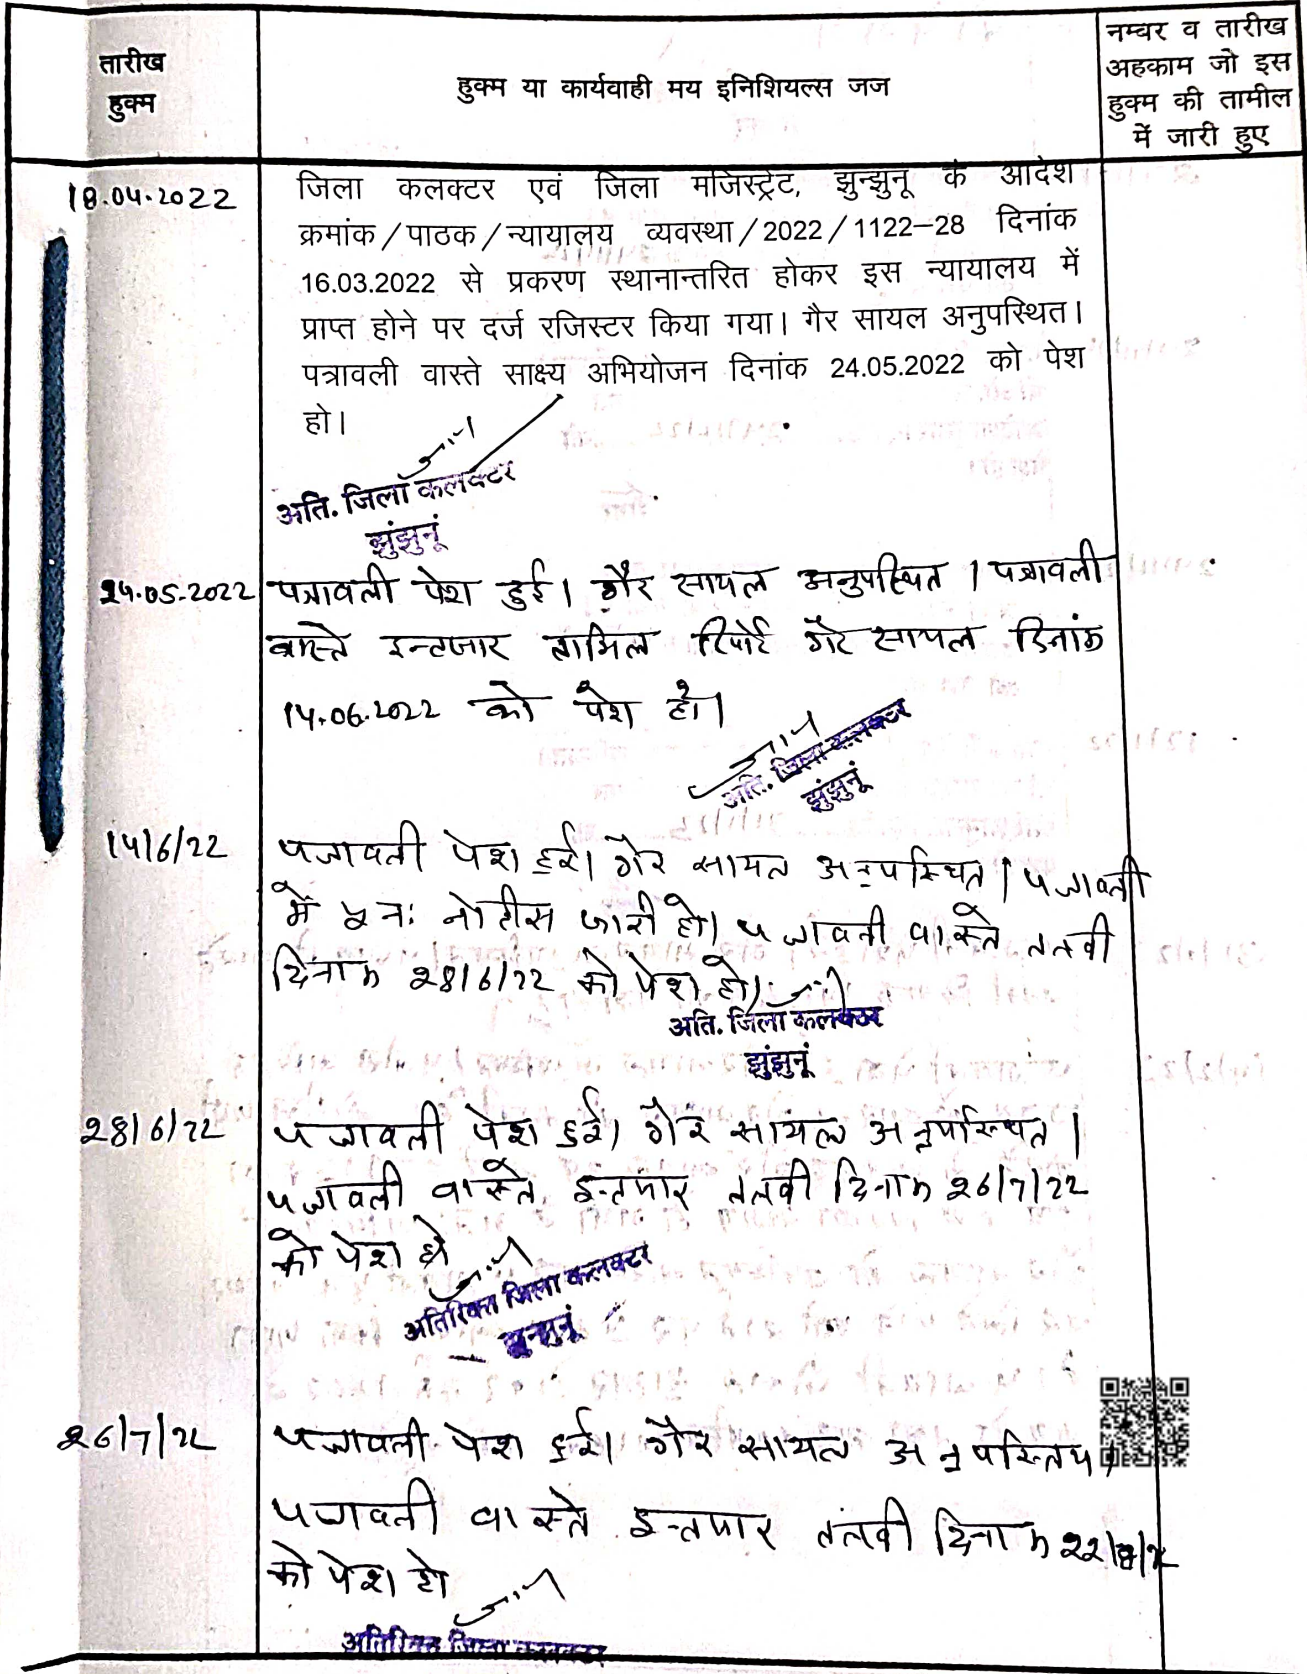 तारीख
हुक्म
हुक्म या कार्यवाही मय इनिशियल्स जज
नम्बर व तारीख
अहकाम जो इस
हुक्म की तामील
में जारी हुए
18.04.2022
जिला कलक्टर एवं जिला मजिस्ट्रेट, झुन्झुनू के आदेश
क्रमांक/पाठक/न्यायालय व्यवस्था/2022/1122-28 दिनांक
16.03.2022 से प्रकरण स्थानान्तरित होकर इस न्यायालय में
प्राप्त होने पर दर्ज रजिस्टर किया गया। गैर सायल अनुपस्थित।
पत्रावली वास्ते साक्ष्य अभियोजन दिनांक 24.05.2022 को पेश
हो।
अति. जिला कलक्टर
झुंझुनूं
24.05.2022 पत्रावली पेश हुई। गैर सायल अनुपस्थित। पत्रावली
वास्ते इन्तजार तामिल रिपोर्ट गैर सायल दिनांक
14.06.2022 को पेश हो।
अति. जिला कलक्टर
झुंझुनूं
14/6/22 पत्रावली पेश हुई। गैर सायल अनुपस्थित। पत्रावली
में पुनः नोटीस जारी हो। पत्रावली वास्ते तलवी
दिनांक 28/6/22 को पेश हो।
अति. जिला कलक्टर
झुंझुनूं
28/6/22 पत्रावली पेश हुई। गैर सायल अनुपस्थित।
पत्रावली वास्ते इन्तजार तलवी दिनांक 26/7/22
को पेश हो
अतिरिक्त जिला कलक्टर
झुन्झुनूं
26/7/22 पत्रावली पेश हुई। गैर सायल अनुपस्तिथ।
पत्रावली वास्ते इन्तजार तलवी दिनांक
को पेश हो
अतिरिक्त जिला कलक्टर